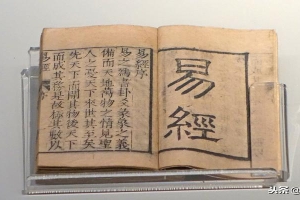 易經
易經序
易之為書卦爻彖象之義
備而天地萬物之情見聖
人之憂天下來世其至矣
先天下而開其物後天下
而成其務是故極其數以
易經
序
头条